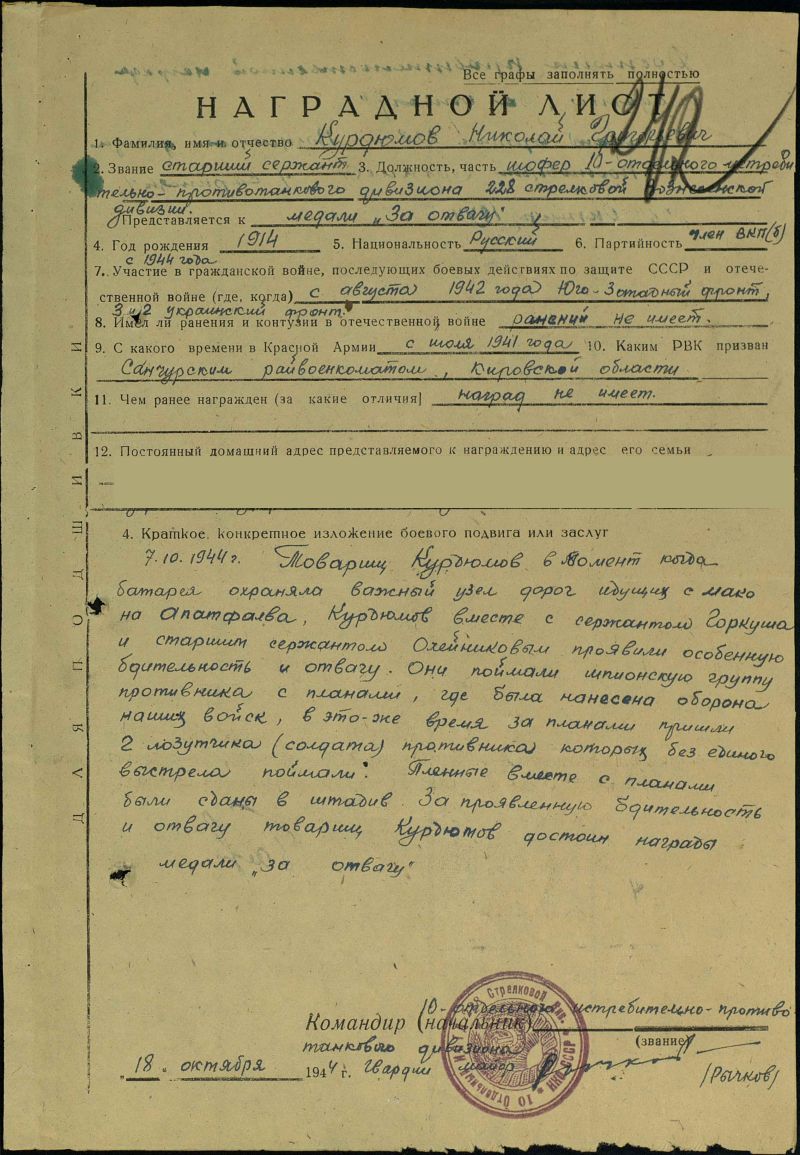 Все графы заполнять полностью
НАГРАДНОЙ ЛИСТ
1. Фамилия, имя и отчество Курдюмов Николай Григорьевич
2. Звание старший сержант 3. Должность, часть шофер 10-отдельного истреби
тельно-противотанкового дивизиона 228 стрелковой Вознесенской
дивизии.
Представляется к медали „За отвагу"
4. Год рождения 1914 5. Национальность Русский 6. Партийность член ВКП(б)
с 1944 года
7. Участие в гражданской войне, последующих боевых действиях по защите СССР и отече-
ственной войне (где, когда) с августа 1942 года Юго-Западный фронт,
3 и 2 украинский фронт.
8. Имел ли ранения и контузии в отечественной войне ранений не имеет.
9. С какого времени в Красной Армии с июля 1941 года 10. Каким РВК призван
Санчурским райвоенкоматом, Кировской области
11. Чем ранее награжден (за какие отличия) наград не имеет.
12. Постоянный домашний адрес представляемого к награждению и адрес его семьи
4. Краткое, конкретное изложение боевого подвига или заслуг
7.10.1944 г. Товарищ Курдюмов в момент когда
батарея охраняла важный узел дорог идущих с мако
на Апатфалва, Курдюмов вместе с сержантом Горкуша
и старшим сержантом Олейниковым проявили особенную
бдительность и отвагу. Они поймали шпионскую группу
противника с планами, где была нанесена оборона
наших войск, в это-же время за планами пришли
2 лазутчика (солдата) противника которых без единого
выстрела поймали. Пленные вместе с планами
были сданы в штадив. За проявленную бдительность
и отвагу товарищ Курдюмов достоин награды
медали „за отвагу"
10-отдельного истребительно-противо
Командир (начальник)
танкового дивизиона
(звание)
„18" октября 1944 г. Гвардии майор (Рычков)
ДЛЯ ПОДШИВКИ